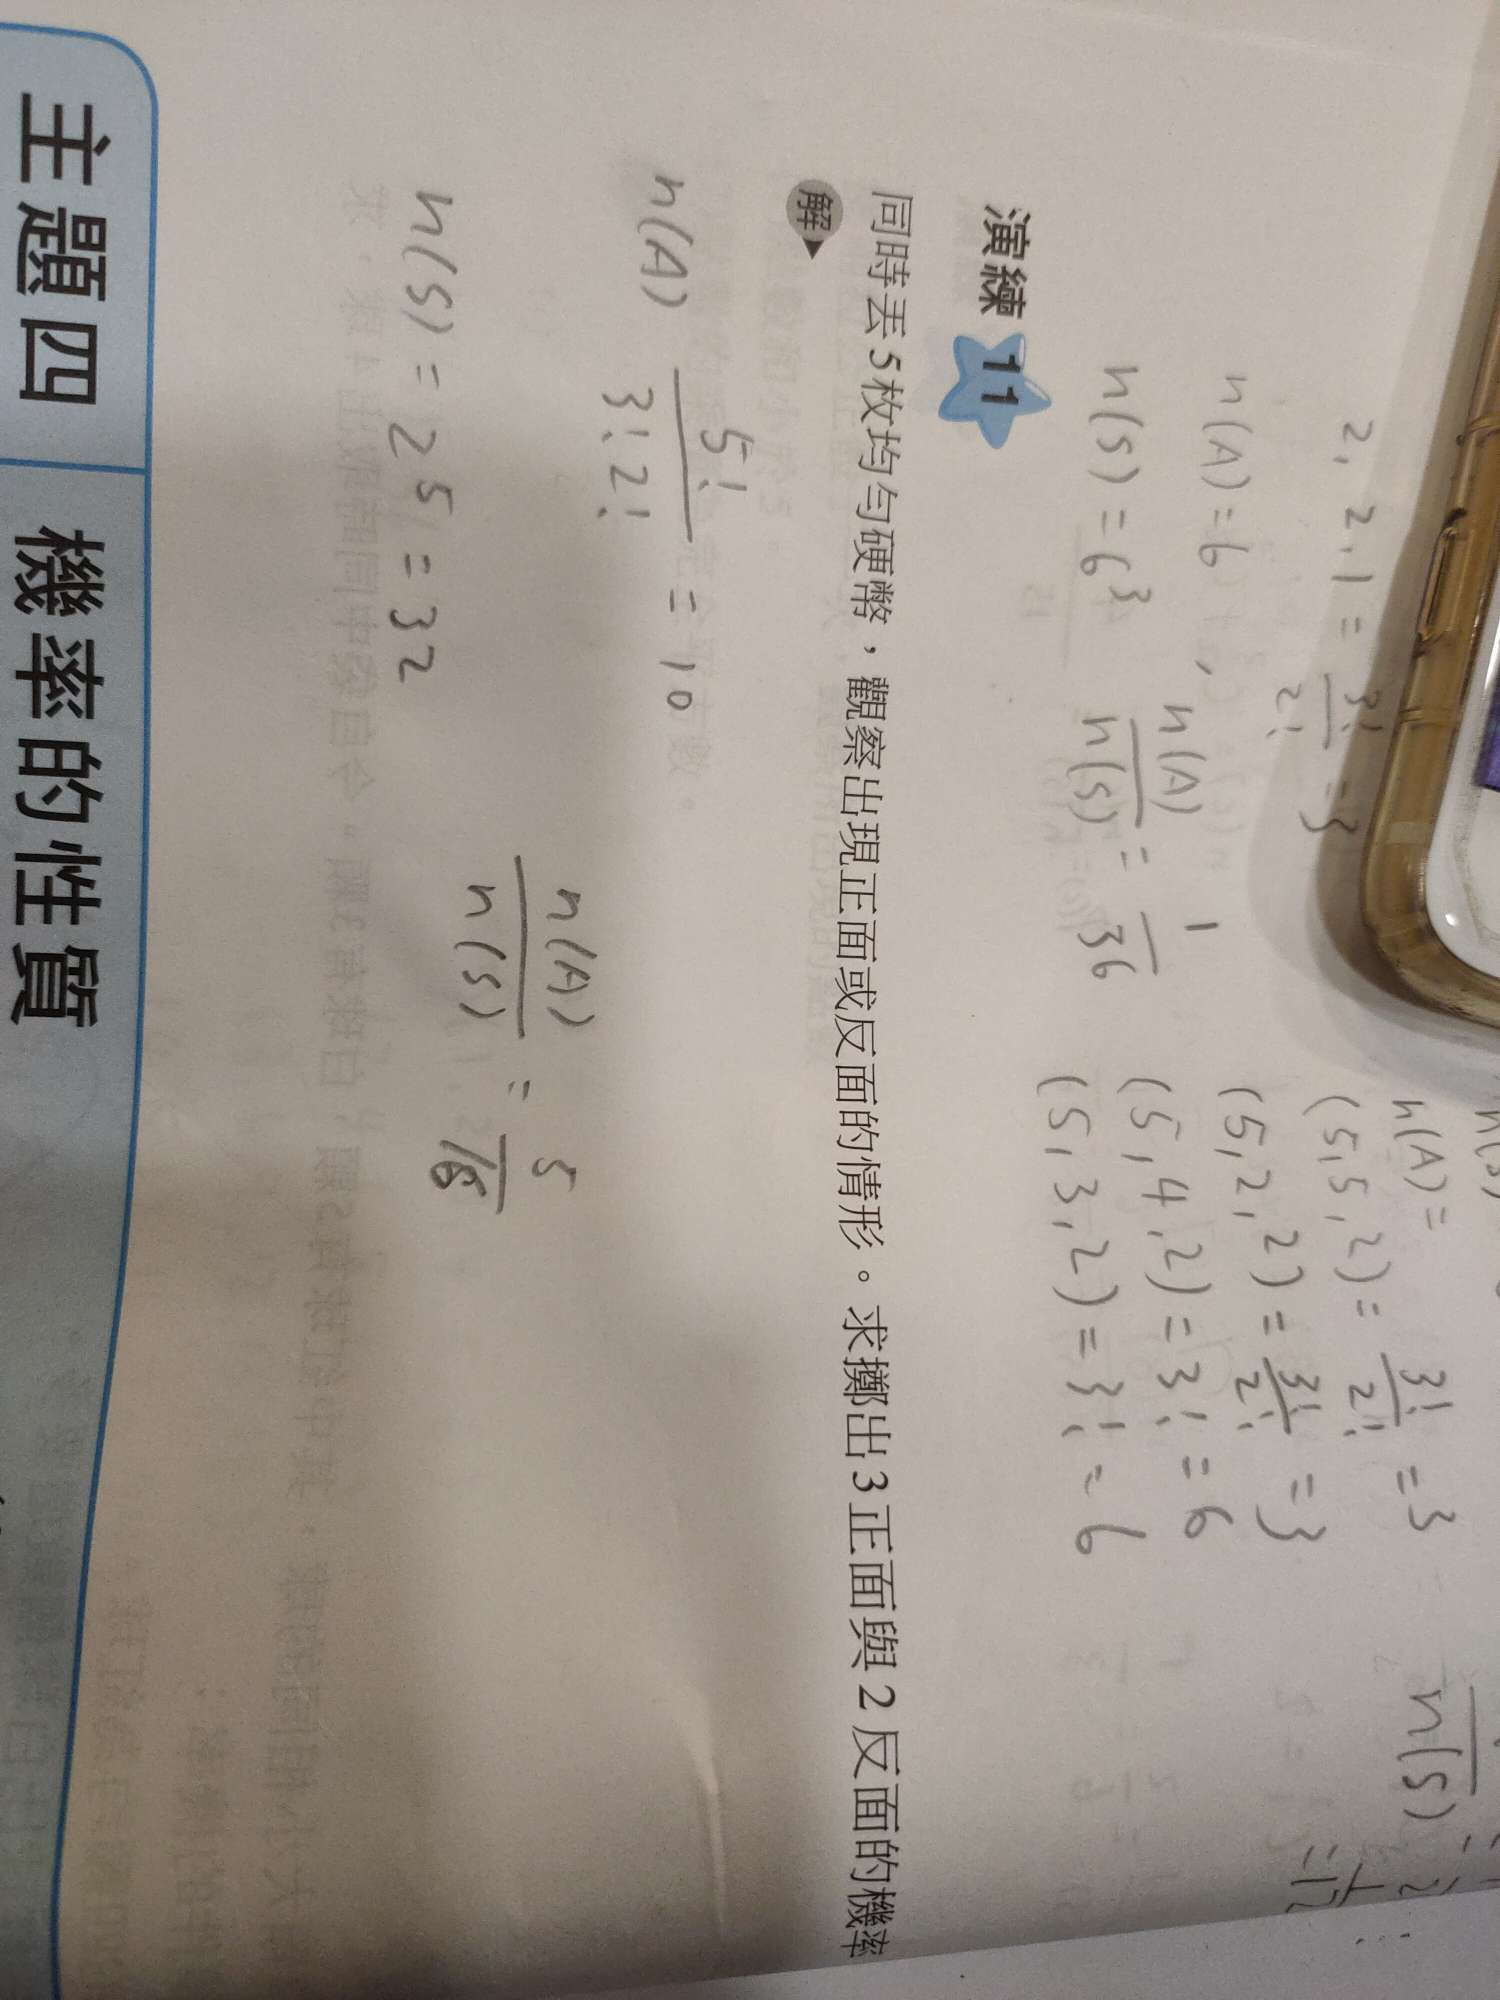 2,2,1=3!/2!=3
n(A)=6,
n(S)=6³
n(A)/n(S)=1/36
n(A)=
(5,5,2)=3!/2!=3
(5,2,2)=3!/2!=3
(5,4,2)=3!=6
(5,3,2)=3!=6
n(S)
演練 11
同時丟5枚均勻硬幣,觀察出現正面或反面的情形。求擲出3正面與2反面的機率
解
n(A) 5!/3!2! = 10
n(S)=2⁵=32
n(A)/n(S)=5/16
主題四 機率的性質